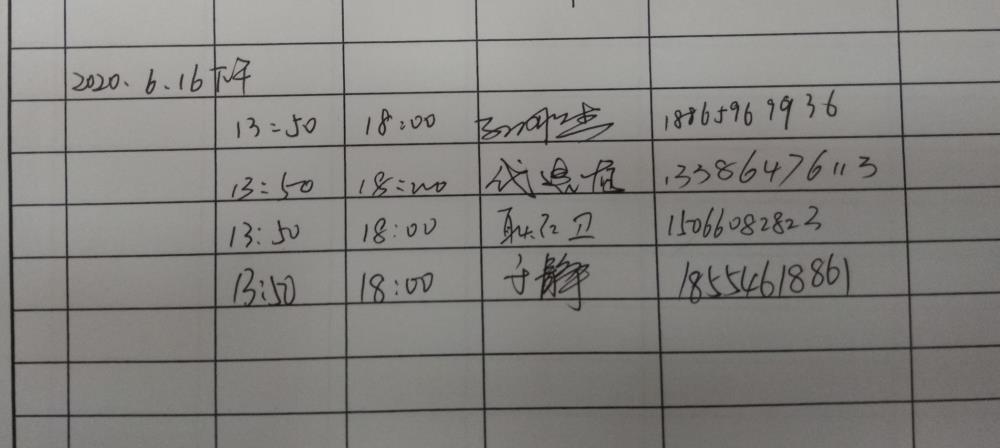 2020.6.16下午
13:50 18:00 18865969936
13:50 18:00 13386476113
13:50 18:00 耿红卫 15066082823
13:50 18:00 于静 18554618861